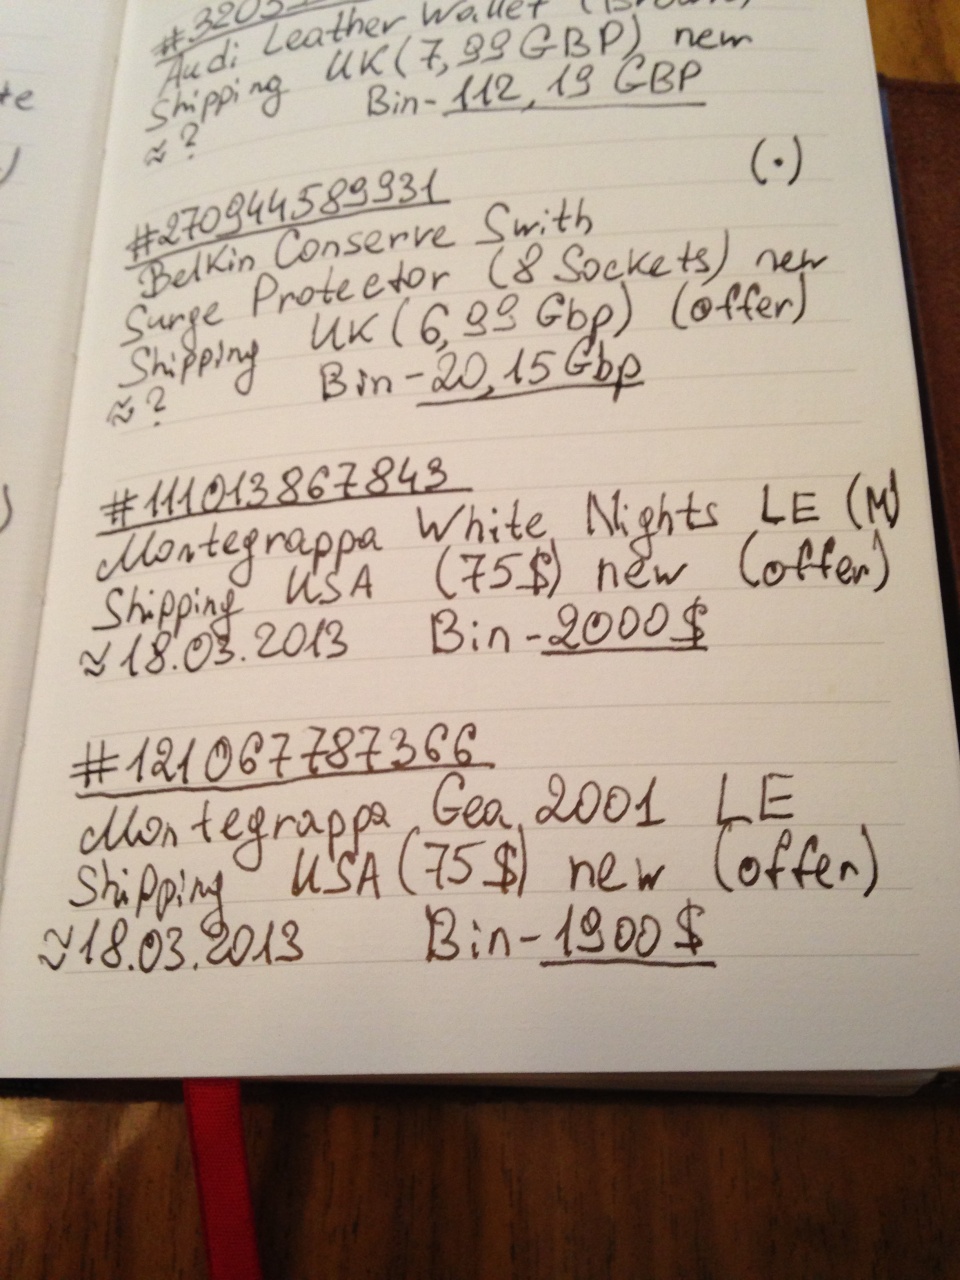 Audi Leather Wallet
Shipping UK (7,99 GBP) new
≈ ? Bin - 112,19 GBP
(.)
#270944589931
Belkin Conserve Swith
Surge Protector (8 Sockets) new
Shipping UK (6,99 Gbp) (offer)
≈ ? Bin - 20,15 Gbp
#111013867843
Montegrappa White Nights LE (M)
Shipping USA (75$) new (offer)
≈ 18.03.2013 Bin - 2000$
#121067787366
Montegrappa Gea 2001 LE
Shipping USA (75$) new (offer)
≈ 18.03.2013 Bin - 1900$